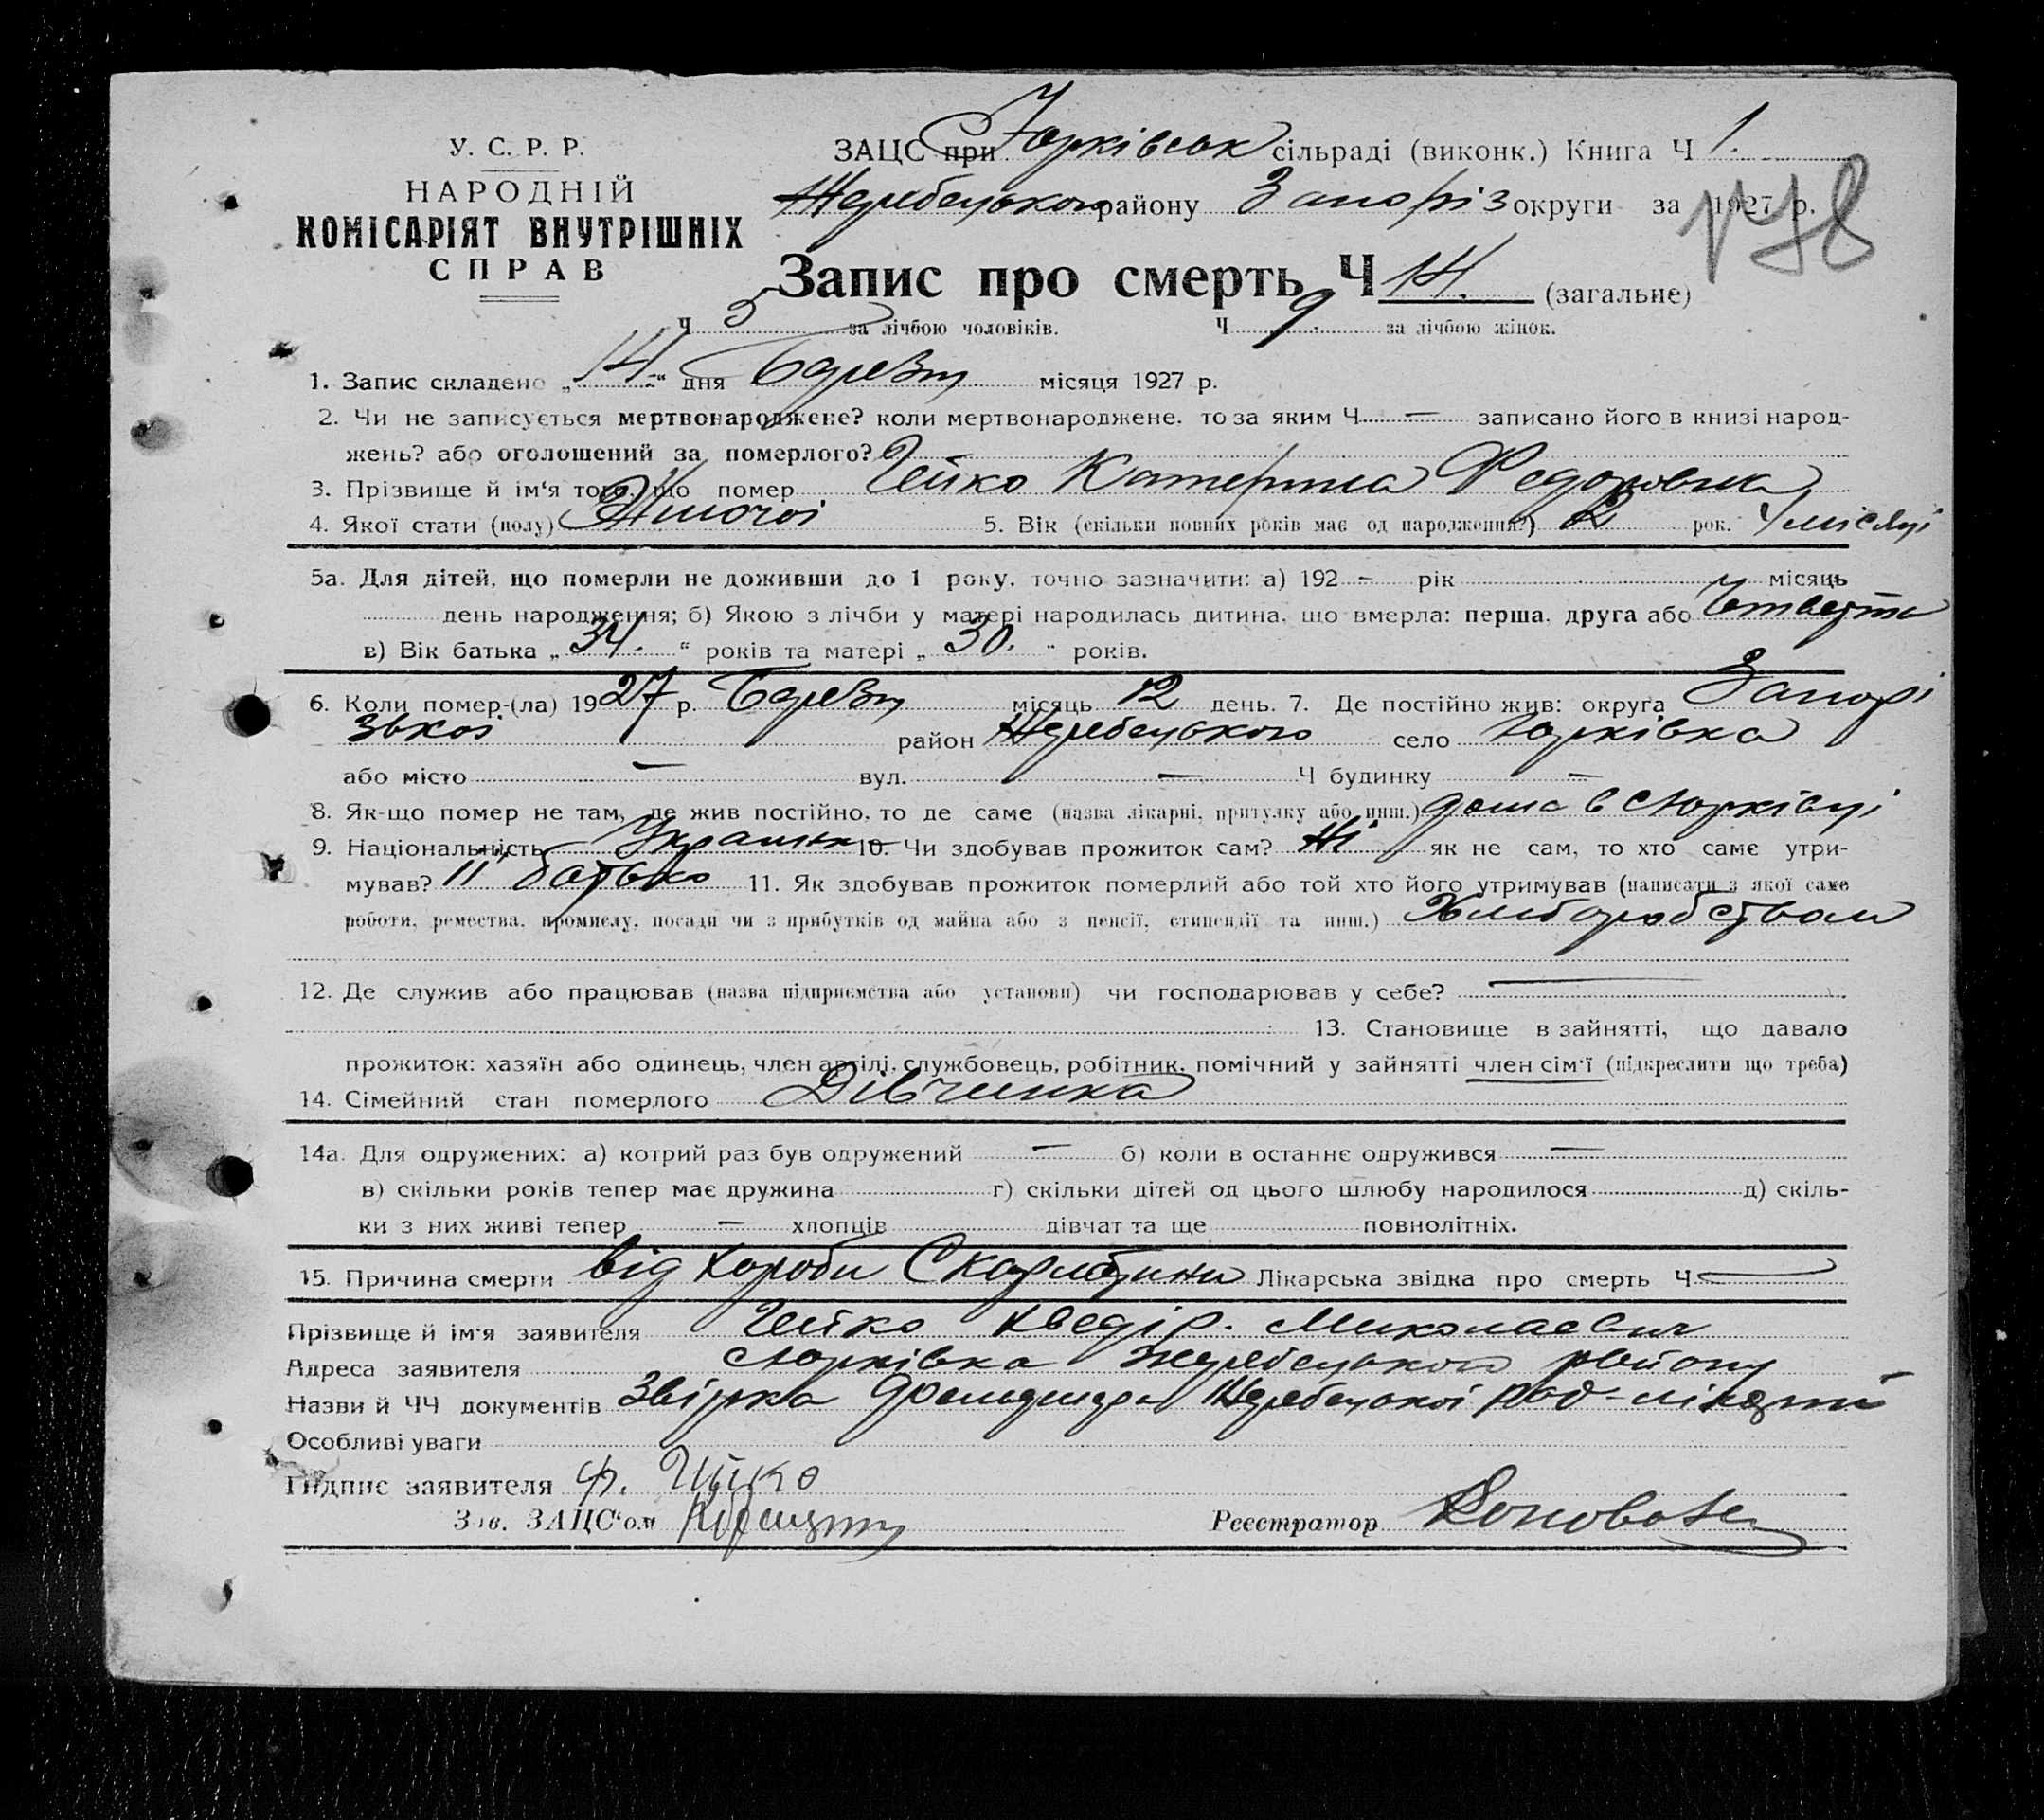 У. С. Р. Р.
НАРОДНІЙ
КОМІСАРІЯТ ВНУТРІШНІХ
СПРАВ
ЗАЦС при Юрківськ сільраді (виконк.) Книга Ч 1.
Жеребецького району Запоріз округи за 1927 р.
178
Запис про смерть Ч 14. (загальне)
Ч 5 за лічбою чоловіків. Ч 9 за лічбою жінок.
1. Запис складено „14.“ дня Березня місяця 1927 р.
2. Чи не записується мертвонароджене? коли мертвонароджене, то за яким Ч — записано його в книзі народ-
жень? або оголошений за померлого?
3. Прізвище й ім‘я того, що помер Чейко Катерина Федоровна
4. Якої стати (полу) Жіночої 5. Вік (скільки повних років має од народження?) 2 рок. 4 місяці
5а. Для дітей, що померли не доживши до 1 року, точно зазначити: а) 192 – рік місяць
день народження; б) Якою з лічби у матері народилась дитина, що вмерла: перша, друга або Четверта
в) Вік батька „34.“ років та матері „30.“ років.
6. Коли помер-(ла) 1927 р. Березня місяць 12 день. 7. Де постійно жив: округа Запорі
зької район Жеребецького село Юрківка
або місто — вул. — Ч будинку —
8. Як-що помер не там, де жив постійно, то де саме (назва лікарні, притулку або инш.) дома в с Юрківці
9. Національність Українка 10. Чи здобував прожиток сам? Ні як не сам, то хто саме утри-
мував? її батько 11. Як здобував прожиток померлий або той хто його утримував (написати з якої саме
роботи, ремества, промислу, посади чи з прибутків од майна або з пенсії, стипендії та инш.) Хліборобством
12. Де служив або працював (назва підприємства або установи) чи господарював у себе? —
13. Становище в зайнятті, що давало
прожиток: хазяїн або одинець, член артілі, службовець, робітник, помічний у зайнятті член сім‘ї (підкреслити що треба)
14. Сімейний стан померлого Дівчинка
14а. Для одружених: а) котрий раз був одружений — б) коли в останнє одружився —
в) скільки років тепер має дружина г) скільки дітей од цього шлюбу народилося д) скіль-
ки з них живі тепер — хлопців дівчат та ще повнолітніх.
15. Причина смерти від хороби Скарлатини Лікарська звідка про смерть Ч —
Прізвище й ім‘я заявителя Чейко Хведір. Миколаевич
Адреса заявителя с Юрківка Жеребецького району
Назви й ЧЧ документів Звірка Жеребецької
Особливі уваги
Підпис заявителя Ф. Чейко
Зав. ЗАЦС‘ом Реєстратор